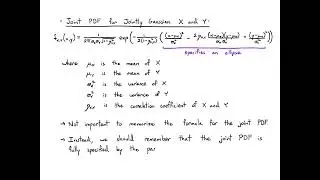 · Joint PDF for Jointly Gaussian X and Y ·
f_{X,Y}(x,y) = \frac{1}{2π σ_X σ_Y \sqrt{1-ρ_{X,Y}^2}} exp( -\frac{1}{2(1-ρ_{X,Y}^2)} ( \frac{(x-μ_X)^2}{σ_X^2} - 2ρ_{X,Y} \frac{(x-μ_X)(y-μ_Y)}{σ_X σ_Y} + \frac{(y-μ_Y)^2}{σ_Y^2} ) )
specifies an ellipse
where μ_X is the mean of X
μ_Y is the mean of Y
σ_X^2 is the variance of X
σ_Y^2 is the variance of Y
ρ_{X,Y} is the correlation coefficient of X and Y
→ Not important to memorize the formula for the joint PDF
→ Instead, we should remember that the joint PDF is
fully specified by the par